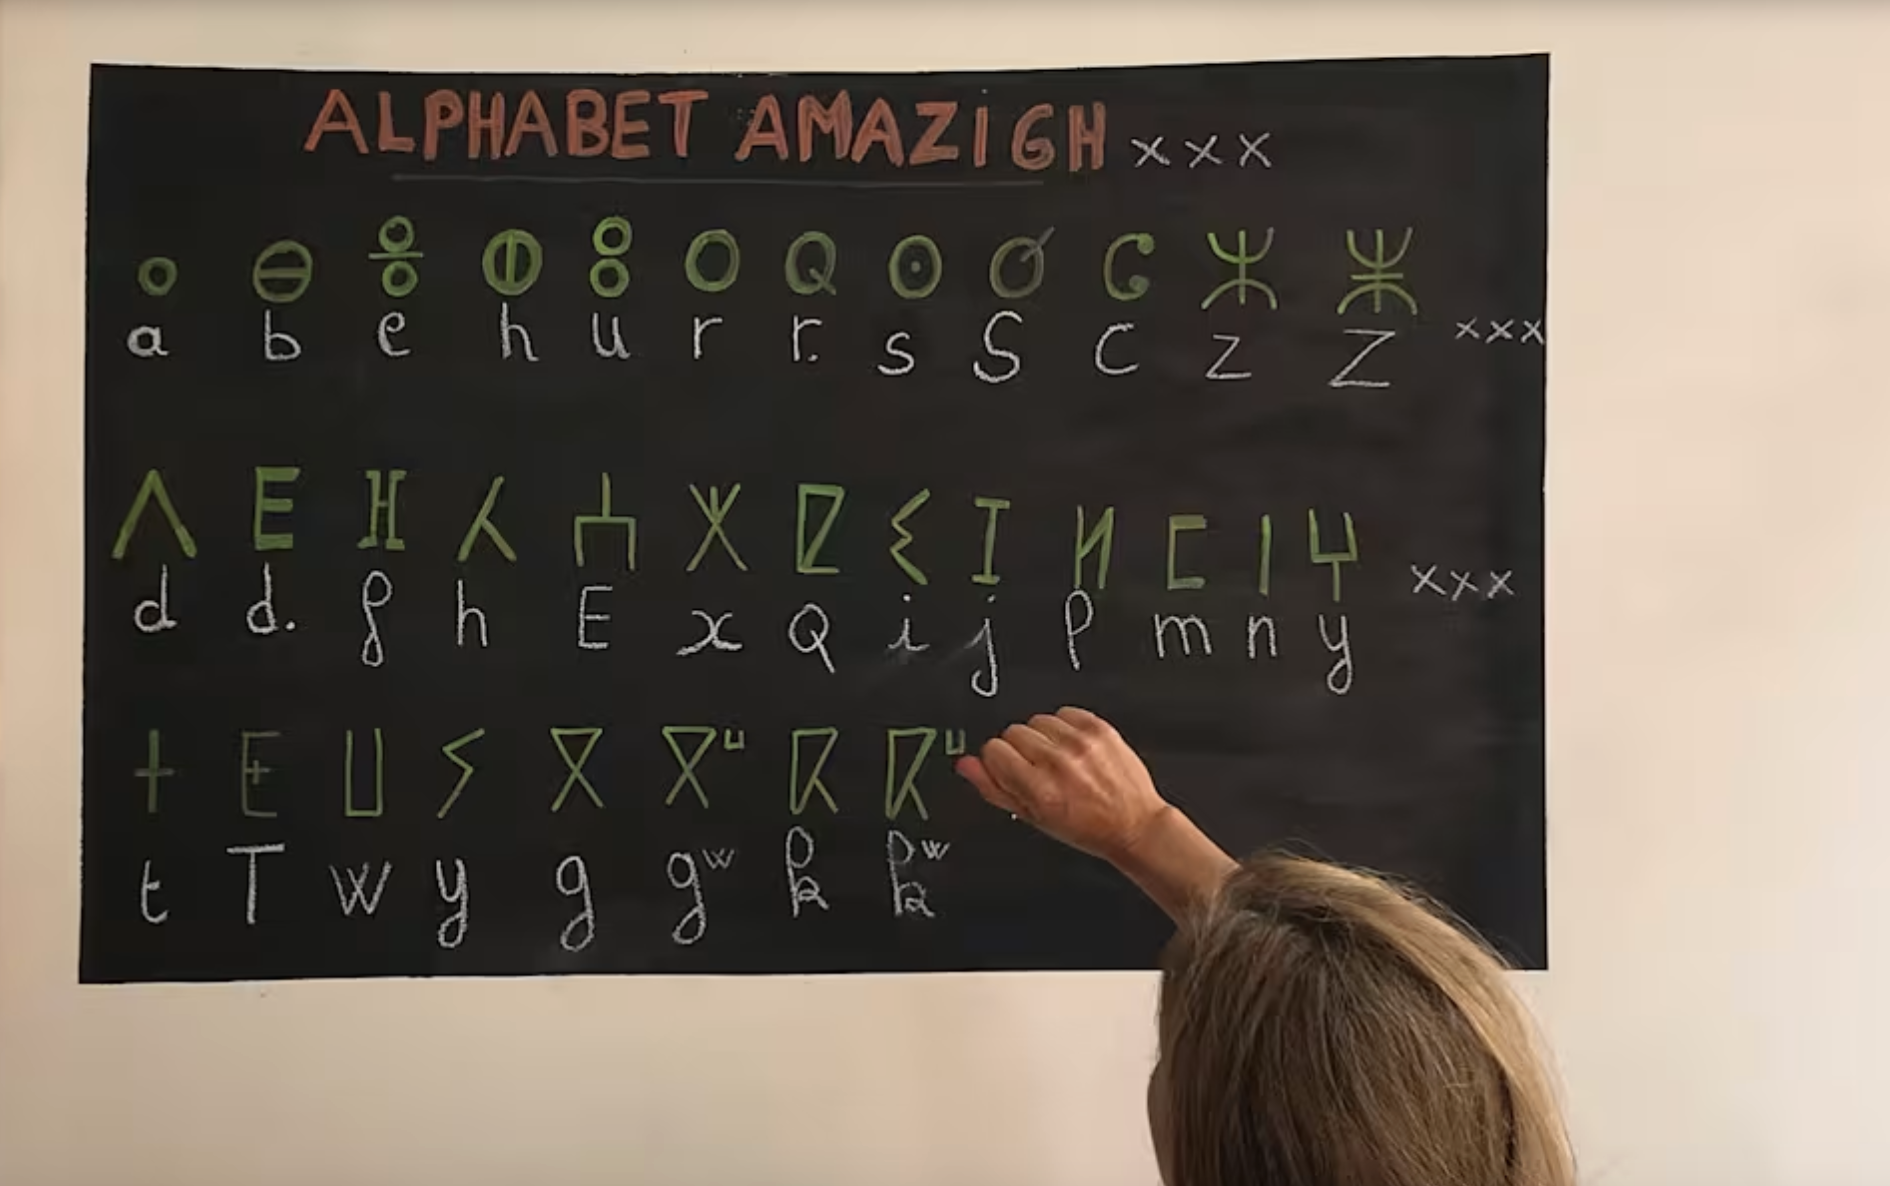 ALPHABET AMAZIGH xxx
ⴰ ⴱ ⴻ ⵀ ⵓ ⵔ ⵕ ⵙ ⵚ ⵛ ⵣ ⵥ
a b e h u r r. s S c z Z xxx
ⴷ ⴹ ⴼ ⵃ ⵄ ⵅ ⵇ ⵉ ⵊ ⵍ ⵎ ⵏ ⵖ
d d. f h E x Q i j l m n y xxx
ⵜ ⵟ ⵡ ⵢ ⴳ ⴳⵯ ⴽ ⴽⵯ
t T w y g gʷ k kʷ